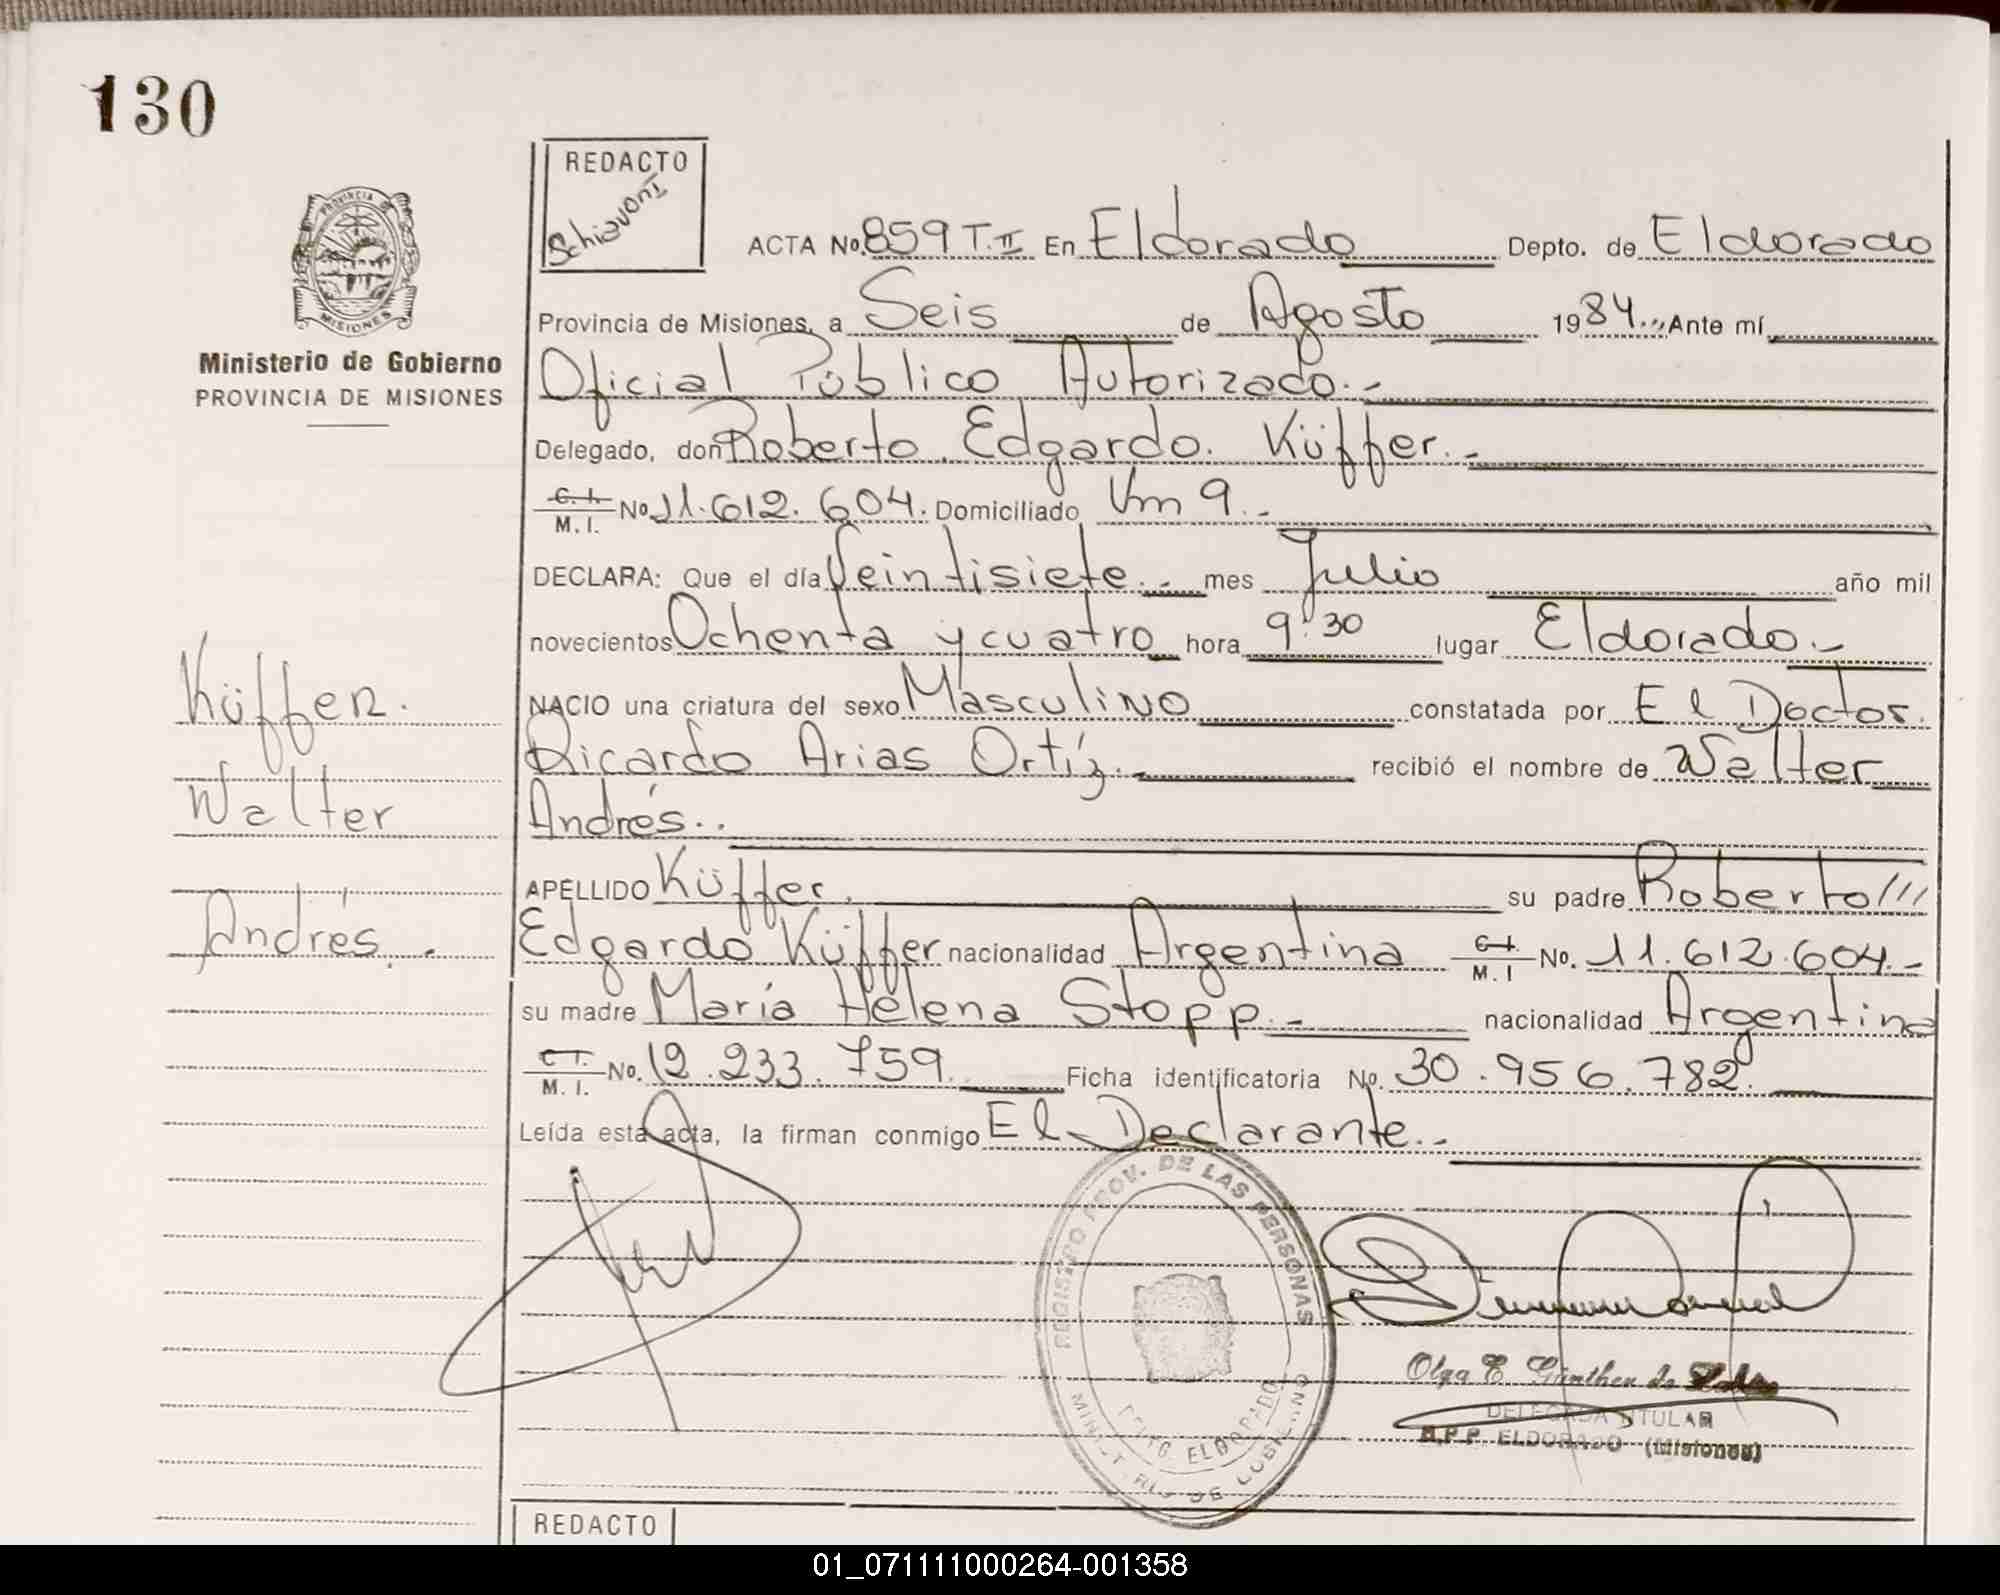 130
REDACTO
Schiavoni
PROVINCIA DE
MISIONES
Ministerio de Gobierno
PROVINCIA DE MISIONES
ACTA No. 859 T. II En Eldorado Depto. de Eldorado
Provincia de Misiones, a Seis de Agosto 1984.., Ante mí
Oficial Público Autorizado.-
Delegado, don Roberto Edgardo. Küffer.-
C. I.
M. I. No 11.612.604. Domiciliado Km 9.-
DECLARA: Que el día Veintisiete.- mes Julio año mil
novecientos Ochenta y cuatro hora 9:30 lugar Eldorado.-
NACIO una criatura del sexo Masculino constatada por El Doctor.
Ricardo Arias Ortíz.- recibió el nombre de Walter
Andrés..
APELLIDO Küffer. su padre Roberto///
Edgardo Küffer nacionalidad Argentina C. I. M. I No. 11.612.604.-
su madre María Helena Stopp.- nacionalidad Argentina
C. I.
M. I. No. 12.233.759. Ficha identificatoria No. 30.956.782.
Leída esta acta, la firman conmigo El Declarante.-
Küffer.
Walter
Andrés.-
REGISTRO PROV. DE LAS PERSONAS
DPTO. ELDORADO
MINISTERIO DE GOBIERNO
Olga E. Günther de
DELEGADA TITULAR
R.P.P. ELDORADO (Misiones)
REDACTO
01_071111000264-001358